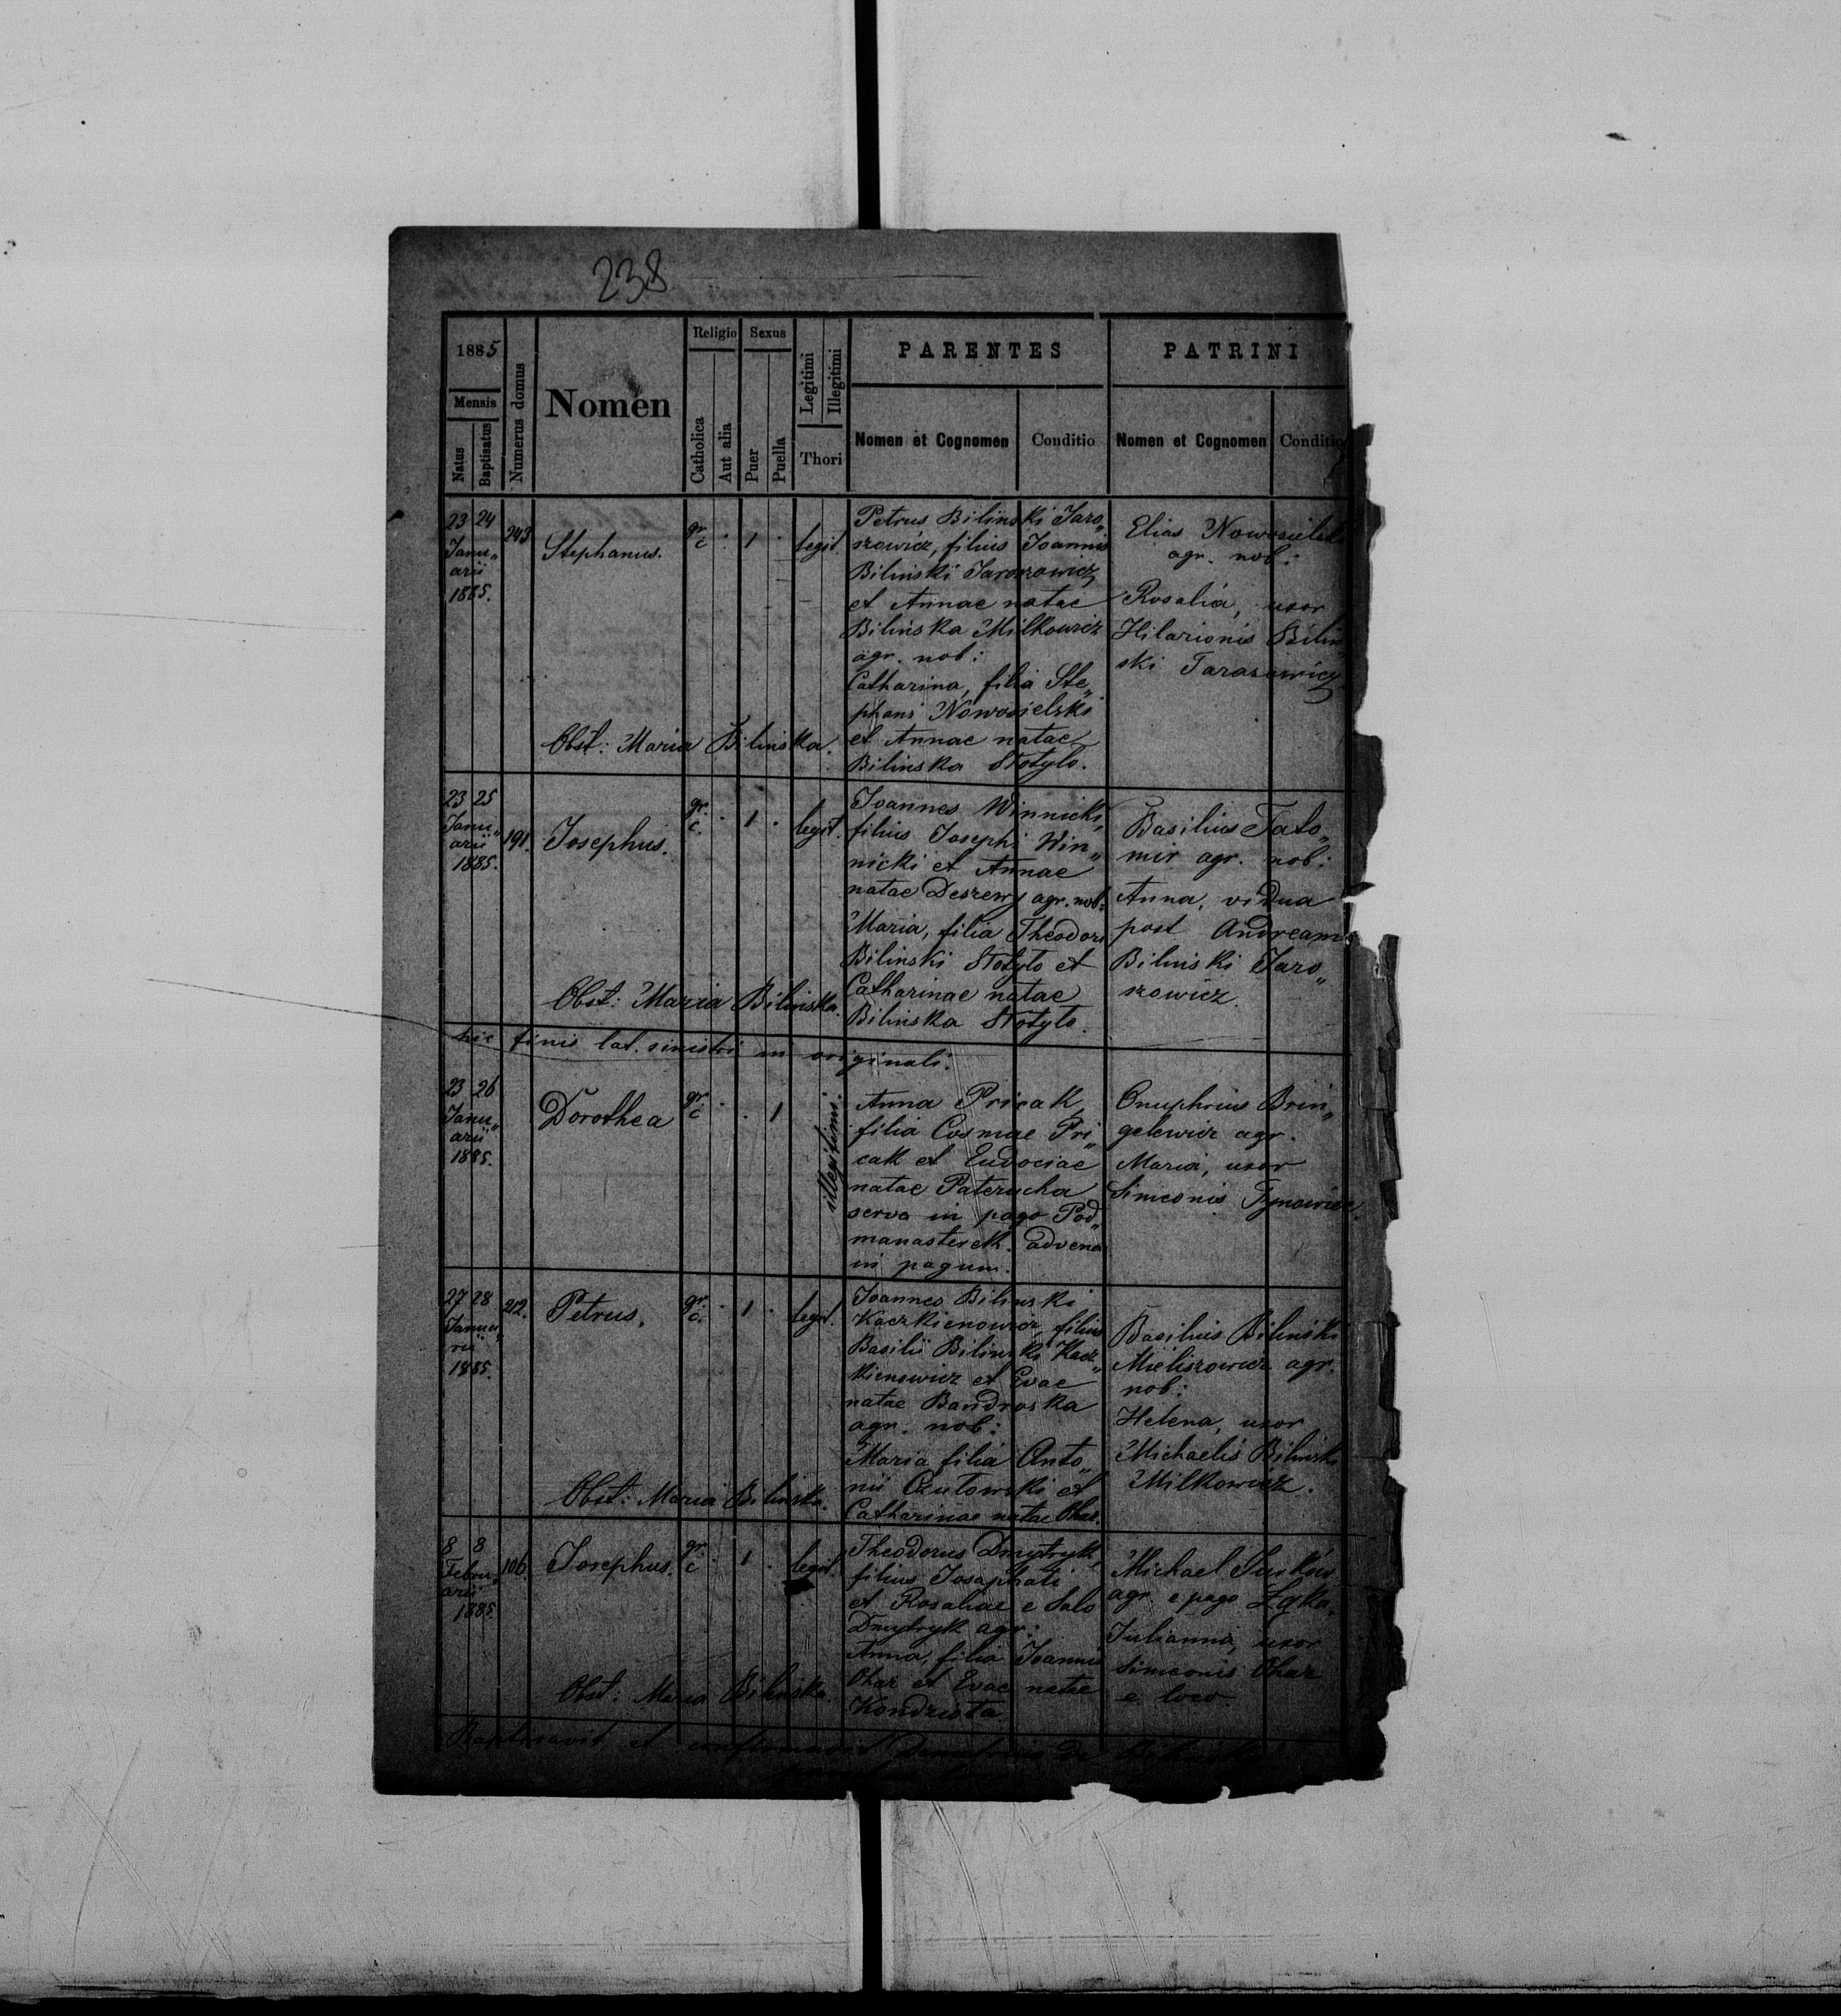 238
1885
Mensis
Natus
Baptisatus
Numerus domus
Nomen
Religio
Catholica
Aut alia
Sexus
Puer
Puella
Legitimi
Illegitimi
Thori
PARENTES
Nomen et Cognomen
Conditio
PATRINI
Nomen et Cognomen
Conditio
23 24
Janu„
arii
1885.
243
Stephanus.
gr.
c
1
legit.
Petrus Bilinski Jaro„
szowicz, filius Joannis
Biliński Jaroszowicz
et Annae natae
Bilińska Milkowicz
agr. nob:
Catharina, filia Ste„
phani Nowosielski
et Annae natae
Bilinska Stotylo.
Elias Nowosielski
agr. nob:
Rosalia, uxor
Hilarionis Bilin„
ski Tarasowicz
Obst: Maria Bilinska.
23 25
Janu„
arii
1885.
191.
Josephus.
gr.
c.
1
legit.
Joannes Winnicki,
filius Josephi Win„
nicki et Annae
natae Deszewy agr. nob:
Maria, filia Theodori
Bilinski Stotylo et
Catharinae natae
Bilinska Stotylo.
Basilius Tato„
mir agr. nob:
Anna, vidua
post Andream
Bilinski Jaro„
szowicz.
Obst: Maria Bilinska.
hic finis lat. sinistri in originali.
23 26
Janu„
arii
1885.
Dorothea
gr.
c
1
illegitimi.
Anna Pricak,
filia Cosmae Pri„
cak et Eudociae
natae Paterucha
serva in pago Pod„
manasterek. advena
in pagum.
Onuphrius Brin„
gelewicz agr.
Maria, uxor
Simeonis Tynowicz.
27 28
Janua„
rii
1885.
212.
Petrus.
gr.
c.
1
legit.
Joannes Bilinski
Kaczkienowicz, filius
Basilii Bilinski Kacz„
kienowicz et Evae
natae Bandroska
agr. nob:
Maria filia Anto„
nii Czutowski et
Catharinae natae Ohar.
Basilius Biliński
Mieliszowicz agr.
nob:
Helena, uxor
Michaelis Bilinski
Milkowicz.
Obst: Maria Bilinska.
8 8
Febru„
arii
1885.
106
Josephus.
gr.
c
1
legit.
Theodorus Dmytryk,
filius Josaphati
et Rosaliae e Salo
Dmytryk agr:
Anna, filia Joannis
Ohar et Evae natae
Kondziota.
Michael
agr. e pago Łąka.
Julianna, uxor
Simeonis Ohar
e loco.
Obst: Maria Bilinska.
Baptisavit et confirmavit